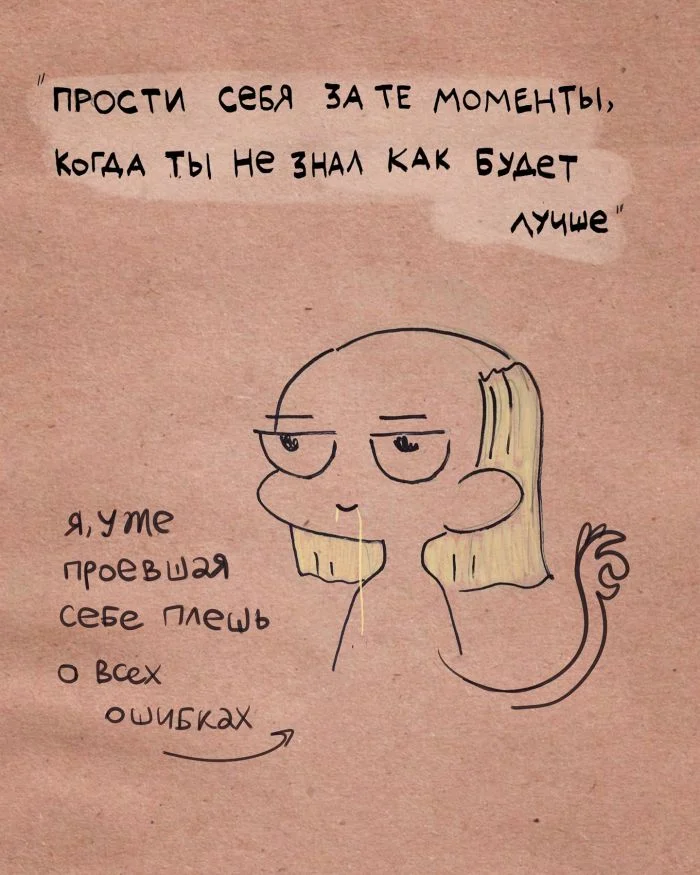 "ПРОСТИ СЕБЯ ЗА ТЕ МОМЕНТЫ,
КОГДА ТЫ НЕ ЗНАЛ КАК БУДЕТ
ЛУЧШЕ"
Я, УЖЕ
ПРОЕВШАЯ
СЕБЕ ПЛЕШЬ
О ВСЕХ
ОШИБКАХ